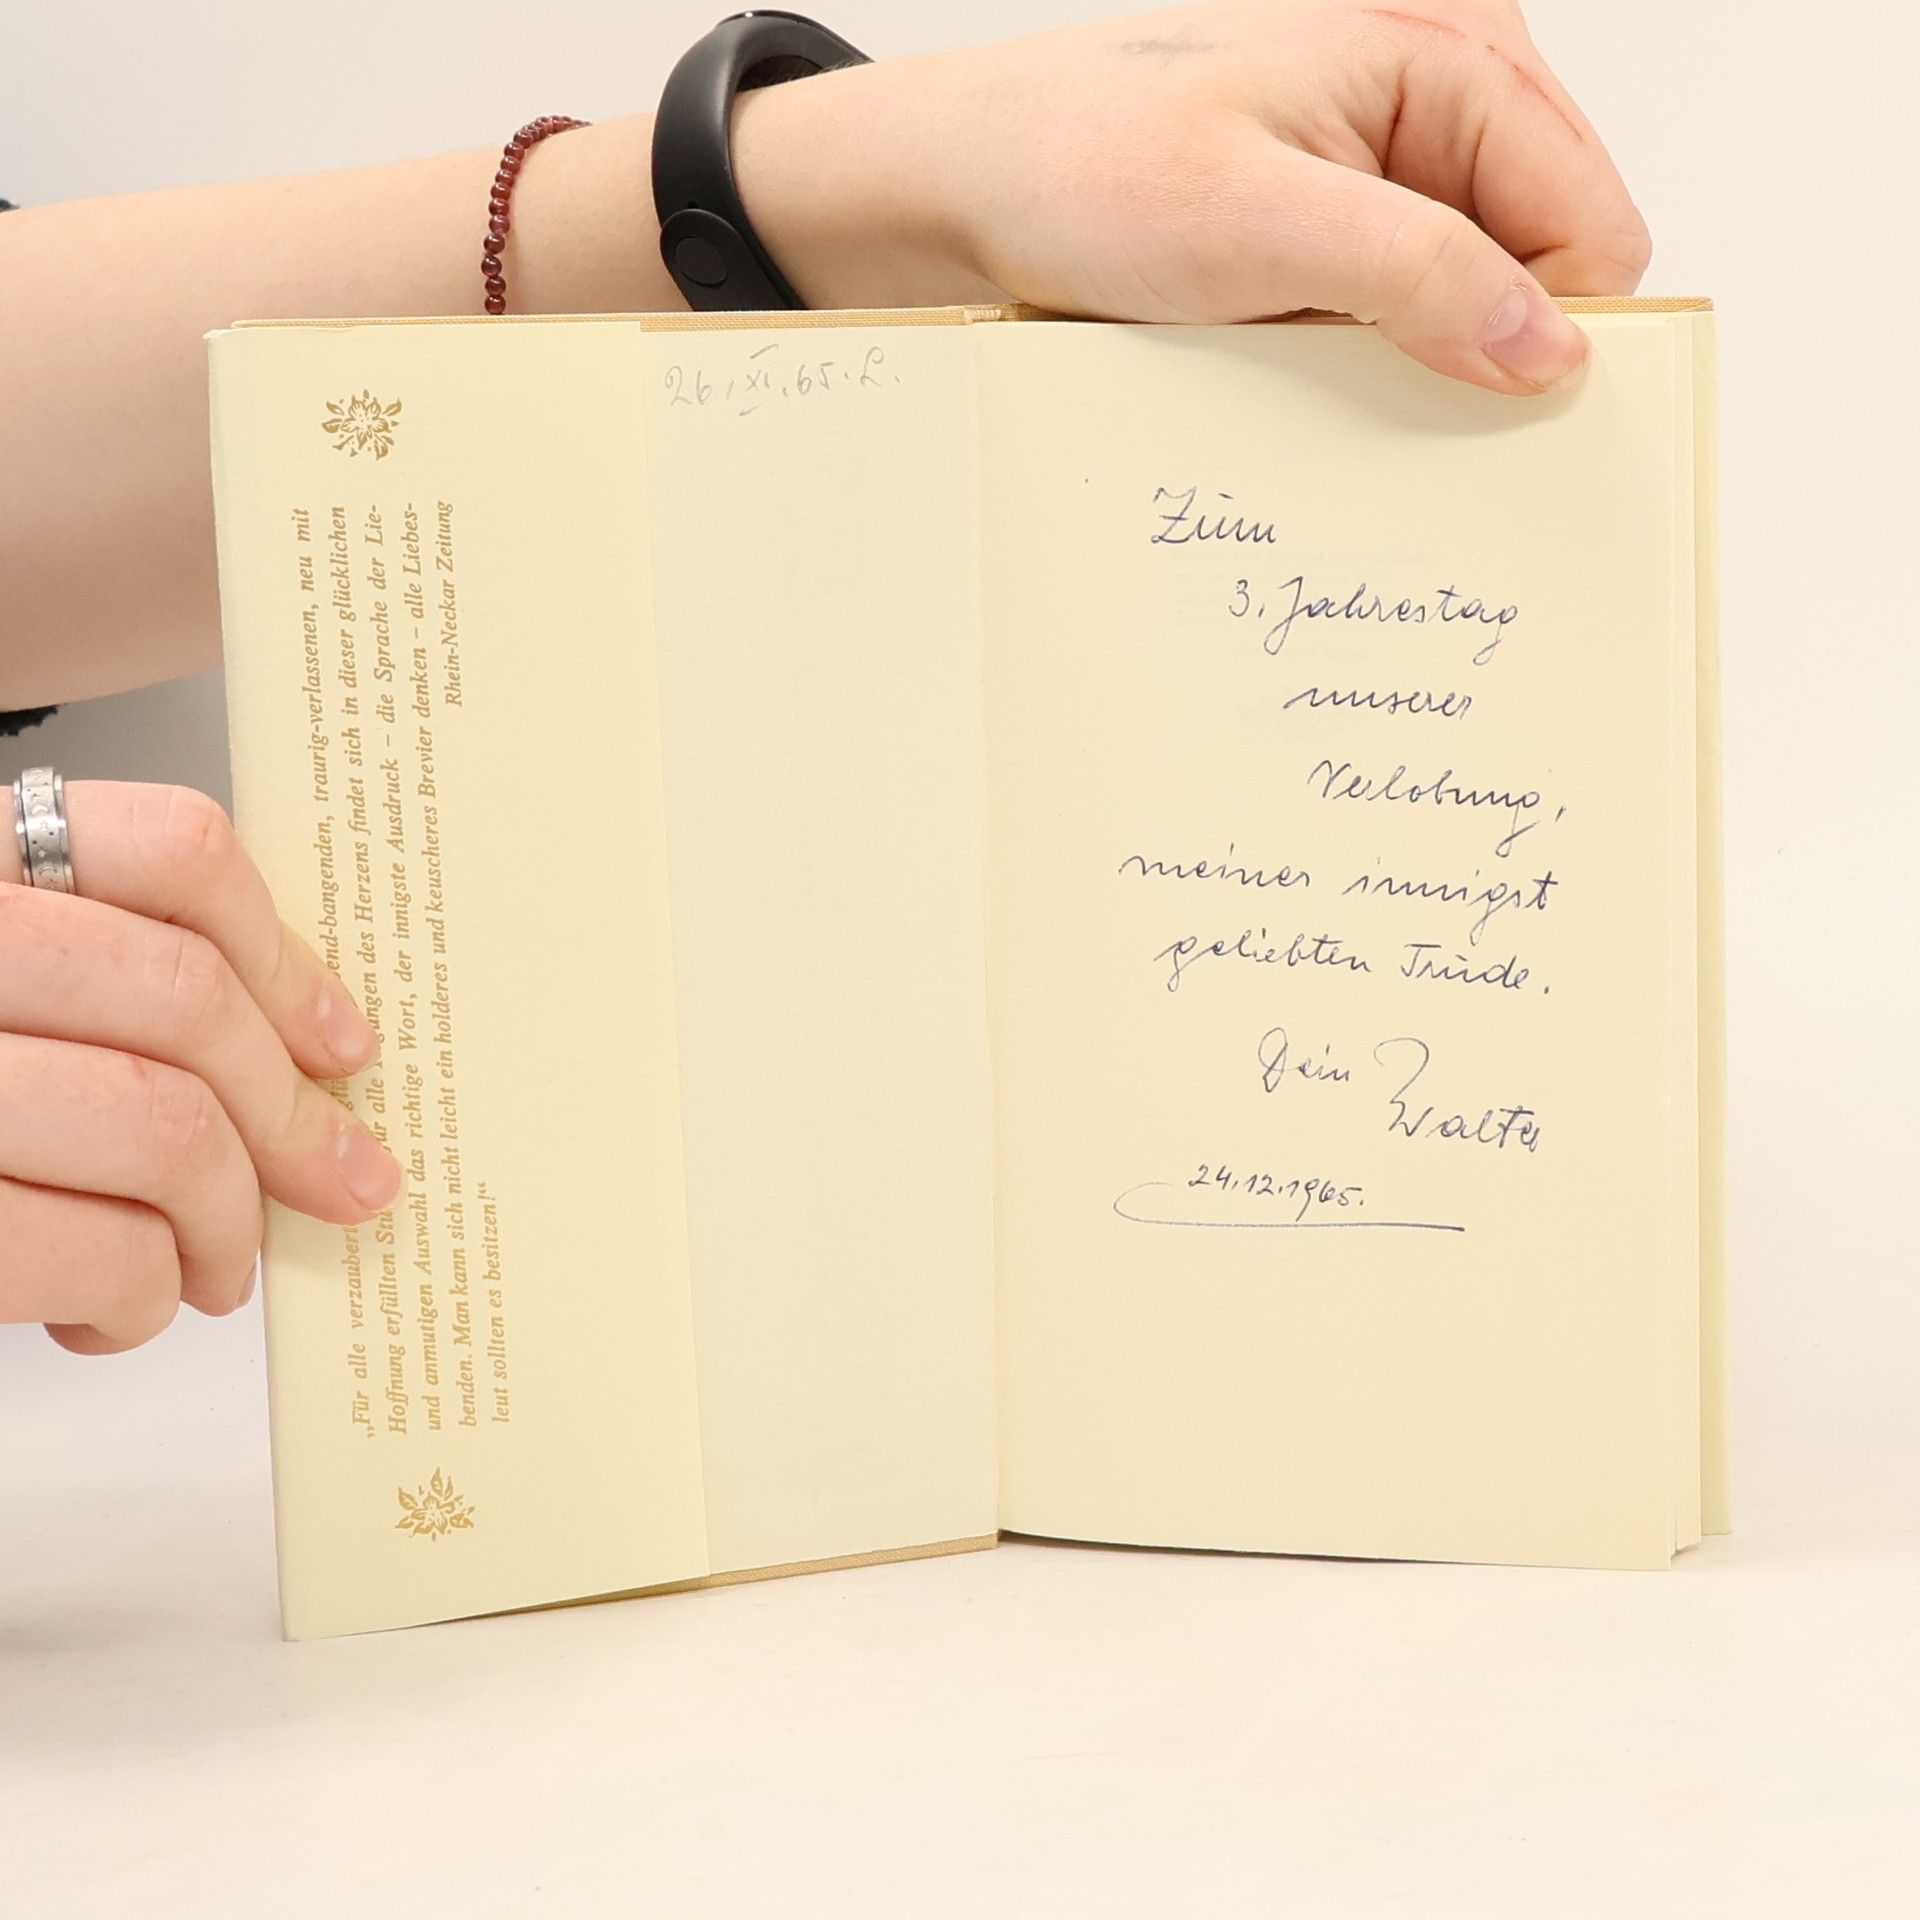 „Für alle verzaubert
end-bangenden, traurig-verlassenen, neu mit
Hoffnung erfüllten für alle des Herzens findet sich in dieser glücklichen
und anmutigen Auswahl das richtige Wort, der innigste Ausdruck – die Sprache der Lie-
benden. Man kann sich nicht leicht ein holderes und keuscheres Brevier denken – alle Liebes-
leut sollten es besitzen!“
Rhein-Neckar Zeitung
26.XI.65.L.
Zum
3. Jahrestag
unserer
Verlobung,
meiner innigst
geliebten Trude.
Dein
Walter
24.12.1965.